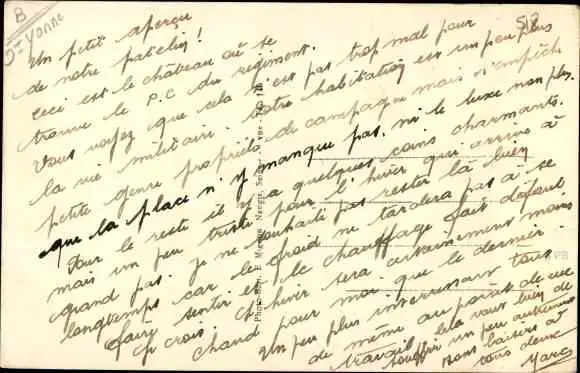 B
St Yonne
513
Un petit aperçu
de notre patelin!
Ceci est le château où se
trouve le P.C du régiment.
Vous voyez que cela n'est pas trop mal pour
la vie militaire. Notre habitation est un peu plus
petite genre propriété de campagne mais n'empêche
que la place n'y manque pas, ni le luxe non plus.
Pour le reste il y a quelques coins charmants.
mais un peu triste pour l'hiver qui arrive à
grand pas. je ne souhaite pas rester là bien
longtemps car le froid ne tardera pas à se
faire sentir et le chauffage fait défaut
je crois. L'hiver sera certainement moins
chaud pour moi que le dernier.
Un peu plus intéressant tout
de même au point de vue
travail, cela vaut bien de
souffrir un peu autrement
Bons baisers à
vous deux
Marc
Photo-Edit. E. Mignon, Nangis,